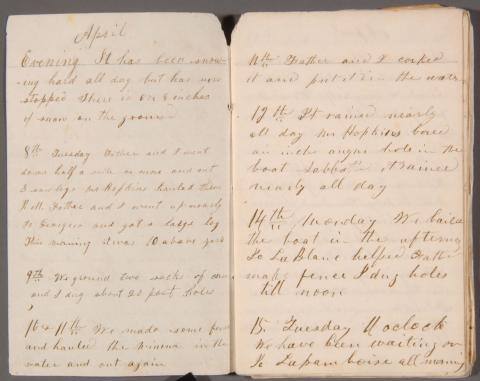 April
Evening It has been snow-
ing hard all day but has now
stopped There is 6 or 8 inches
of snow on the ground
8th Tuesday Father and I went
down half a mile or more and cut
3 saw logs Mr Hopkins hauled them
Father and I went up nearly
to Georges and got a large log
This morning it was 10 above zero
9th We ground two sacks of
and I dug about 20 post holes
10 & 11th We made some fence
and hauled the in the
water and out again
11th Father and I corked
it and put it in the water
12th It rained nearly
all day Mr Hopkins bored
an inch auger hole in the
boat Sabbath it rained
nearly all day
14th Monday We bailed
the boat in the afternoon
Jo LaBlanc helped Father
make fence I dug holes
till noon
15 Tuesday oclock
We have been waiting on
Jo all morning